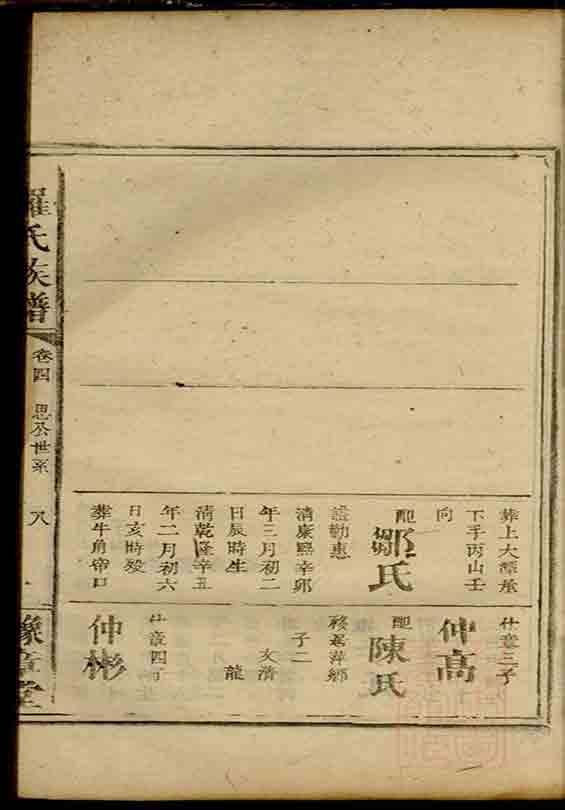 葬上大潭垄
丁手丙山壬
向
配
鄒氏
謚勤惠
清康熙辛卯
年三月初二
日辰時生
清乾隆辛丑
年二月初六
日亥時歿
葬牛角帝口
仕章三子
仲高
配
陳氏
移居萍鄉
子二
文濟
龍
仕章四子
仲彬
羅氏族譜
卷四
思公世系
豫章堂